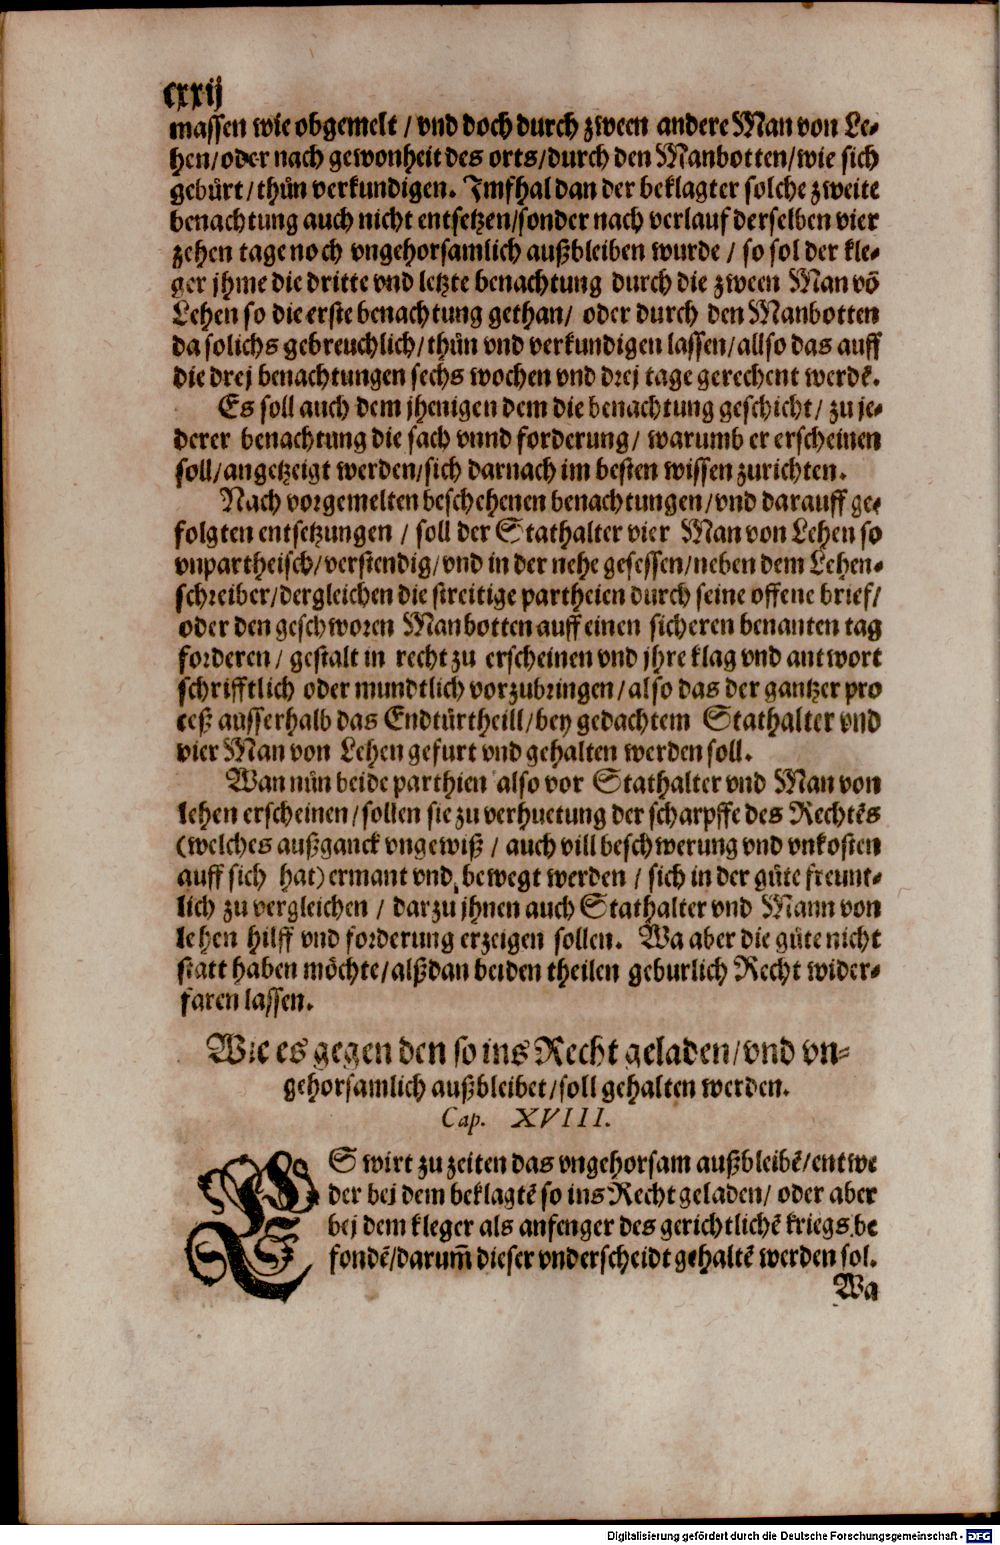 cxxij
massen wie obgemelt / vnd doch durch zween andere Man von Le⸗
hen/oder nach gewonheit des orts/durch den Manbotten/wie sich
gebürt/thůn verkundigen. Imfhal dan der beklagter solche zweite
benachtung auch nicht entsetzen/sonder nach verlauf derselben vier
zehen tage noch vngehorsamlich außbleiben wurde / so sol der kle⸗
ger jhme die dritte vnd letzte benachtung durch die zween Man võ
Lehen so die erste benachtung gethan/ oder durch den Manbotten
da solichs gebreuchlich/thůn vnd verkundigen lassen/allso das auff
die drej benachtungen sechs wochen vnd drej tage gerechent werdẽ.
Es soll auch dem jhenigen dem die benachtung geschicht/ zu je⸗
derer benachtung die sach vnnd forderung/ warumb er erscheinen
soll/angetzeigt werden/sich darnach im besten wissen zurichten.
Nach vorgemelten beschehenen benachtungen/vnd darauff ge⸗
folgten entsetzungen / soll der Stathalter vier Man von Lehen so
vnpartheisch/verstendig/vnd in der nehe gesessen/neben dem Lehen⸗
schreiber/dergleichen die streitige partheien durch seine offene brief/
oder den geschworen Manbotten auff einen sicheren benanten tag
forderen/ gestalt in recht zu erscheinen vnd jhre klag vnd antwort
schrifftlich oder mundtlich vorzubringen/also das der gantzer pro
ceß ausserhalb das Endtürtheill/bey gedachtem Stathalter vnd
vier Man von Lehen gefurt vnd gehalten werden soll.
Wan nůn beide parthien also vor Stathalter vnd Man von
lehen erscheinen/sollen sie zu verhuetung der scharpffe des Rechtẽs
(welches außganck vngewiß / auch vill beschwerung vnd vnkosten
auff sich hat) ermant vnd bewegt werden / sich in der güte freunt⸗
lich zu vergleichen / darzu jhnen auch Stathalter vnd Mann von
lehen hilff vnd forderung erzeigen sollen. Wa aber die güte nicht
statt haben möchte/alßdan beiden theilen geburlich Recht wider⸗
faren lassen.
Wie es gegen den so ins Recht geladen/vnd vn⸗
gehorsamlich außbleibet/soll gehalten werden.
Cap. XVIII.
ES wirt zu zeiten das vngehorsam außbleibẽ/entwe
der bej dem beklagtẽ so ins Recht geladen/ oder aber
bej dem kleger als anfenger des gerichtlichẽ kriegs be
fondẽ/darum̃ dieser vnderscheidt gehaltẽ werden sol.
Wa
Digitalisierung gefördert durch die Deutsche Forschungsgemeinschaft - DFG